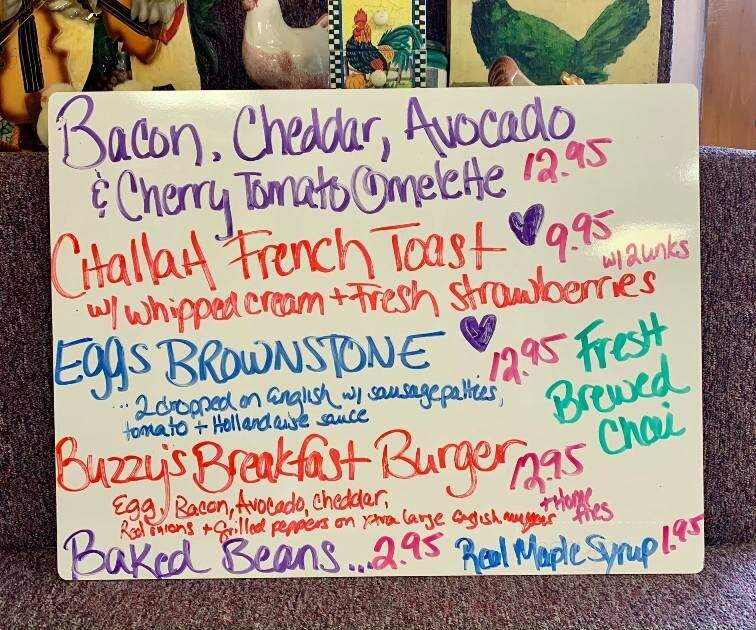 Bacon, Cheddar, Avocado
& Cherry Tomato Omelette 12.95
Challah French Toast 9.95
w/ whipped cream + Fresh strawberries w/ 2 links
Eggs BROWNSTONE 12.95
...2 dropped on english w/ sausage patties,
tomato + Hollandaise sauce
Fresh
Brewed
Chai
Buzzy's Breakfast Burger 12.95
Egg, Bacon, Avocado, Cheddar, + Home
Red onions + Grilled peppers on xtra large english fries
Baked Beans...2.95 Real Maple Syrup 1.95